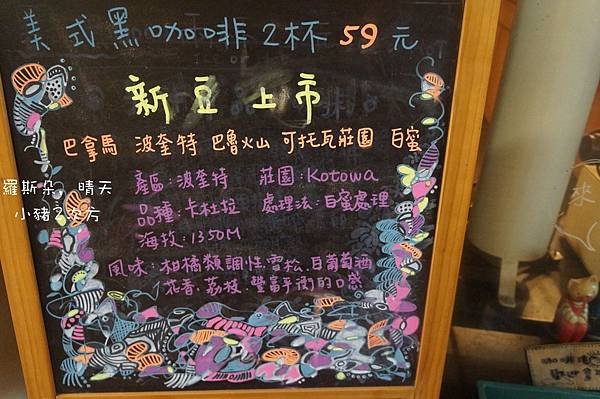 美式黑咖啡2杯59元
新豆上市
巴拿馬 波奎特 巴魯火山 可托瓦莊園 白蜜
產區:波奎特 莊園:Kotowa
品種:卡杜拉 處理法:白蜜處理
海拔:1350M
風味:柑橘類調性.雪松.白葡萄酒
花香.荔枝.豐富平衡的口感
羅斯朵,晴天
小豬2次方
來
咖啡